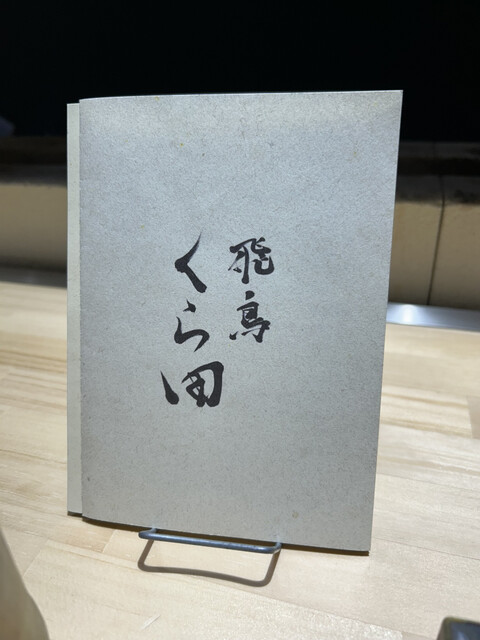 飛鳥
くら田